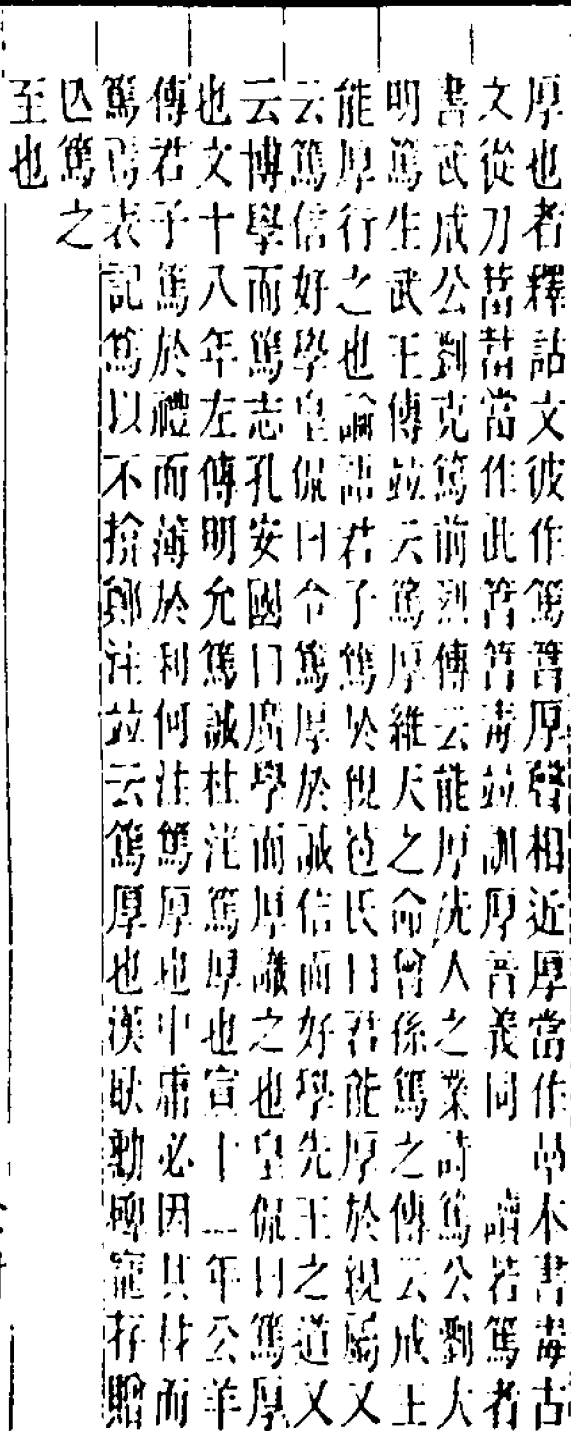 厚也者釋詁文彼作篤𥳑厚聲相近厚當作㫗本書毒古
文從刀葍葍當作此𥳑𥳑毒竝訓厚音義同　讀若篤者
書武成公劉克篤前烈傳云能厚先人之業詩篤公劉大
明篤生武王傳竝云篤厚維天之命曾孫篤之傳云成王
能厚行之也論語君子篤於親苞氏曰君能厚於親屬又
云篤信好學皇侃曰令篤厚於誠信而好學先王之道又
云博學而篤志孔安國曰廣學而厚識之也皇侃曰篤厚
也文十八年左傳明允篤誠杜注篤厚也宣十二年公羊
傳君子篤於禮而薄於利何注篤厚也中庸必因其材而
篤焉表記篤以不揜鄭注竝云篤厚也漢耿勳碑寵存贈
亾篤之
至也